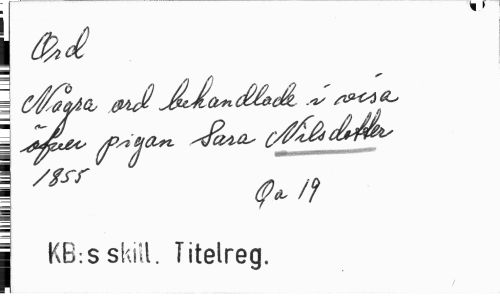 Ord
Några ord behandlade i visa
öfver pigan Sara Nilsdotter
1855
Qa 19
KB:s skill. Titelreg.